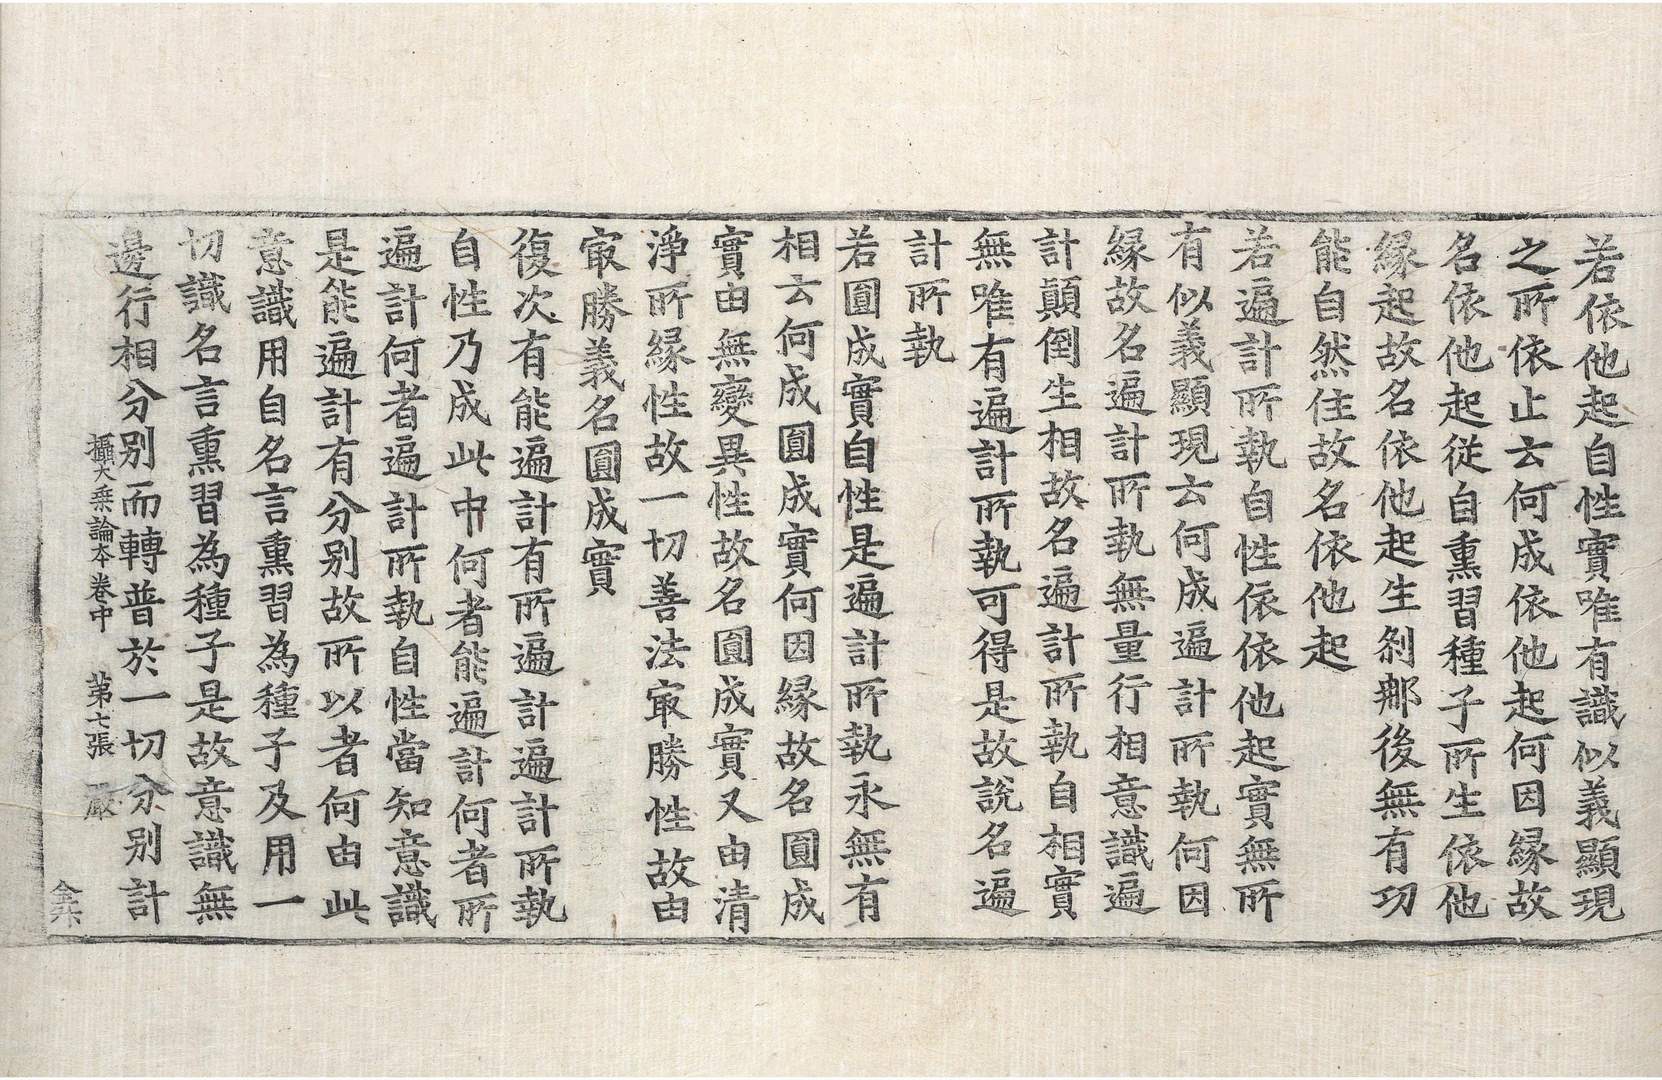 若依他起自性實唯有識似義顯現
之所依止云何成依他起何因緣故
名依他起從自熏習種子所生依他
緣起故名依他起生刹那後無有功
能自然住故名依他起
若遍計所執自性依依他起實無所
有似義顯現云何成遍計所執何因
緣故名遍計所執無量行相意識遍
計顛倒生相故名遍計所執自相實
無唯有遍計所執可得是故說名遍
計所執
若圓成實自性是遍計所執永無有
相云何成圓成實何因緣故名圓成
實由無變異性故名圓成實又由清
淨所緣性故一切善法㝡勝性故由
㝡勝義名圓成實
復次有能遍計有所遍計遍計所執
自性乃成此中何者能遍計何者所
遍計何者遍計所執自性當知意識
是能遍計有分別故所以者何由此
意識用自名言熏習為種子及用一
切識名言熏習為種子是故意識無
邊行相分別而轉普於一切分別計
攝大乘論本卷中 第七張 嚴